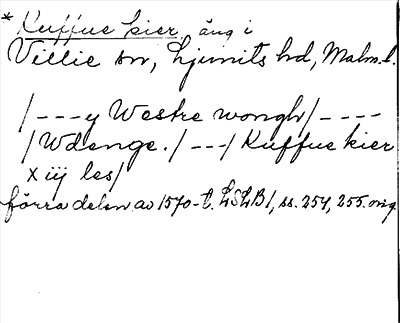 * Kuffue kier, äng i
Villie sn, Ljunits hd, Malm. l.
/---y Westre wongh/----
/Wdenge./---/Kuffue kier
x iij les/
förra delen av 1570-t. LSLB 1, ss. 254, 255. orig.